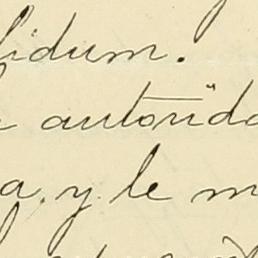 lidum.
autorida
a, y le m